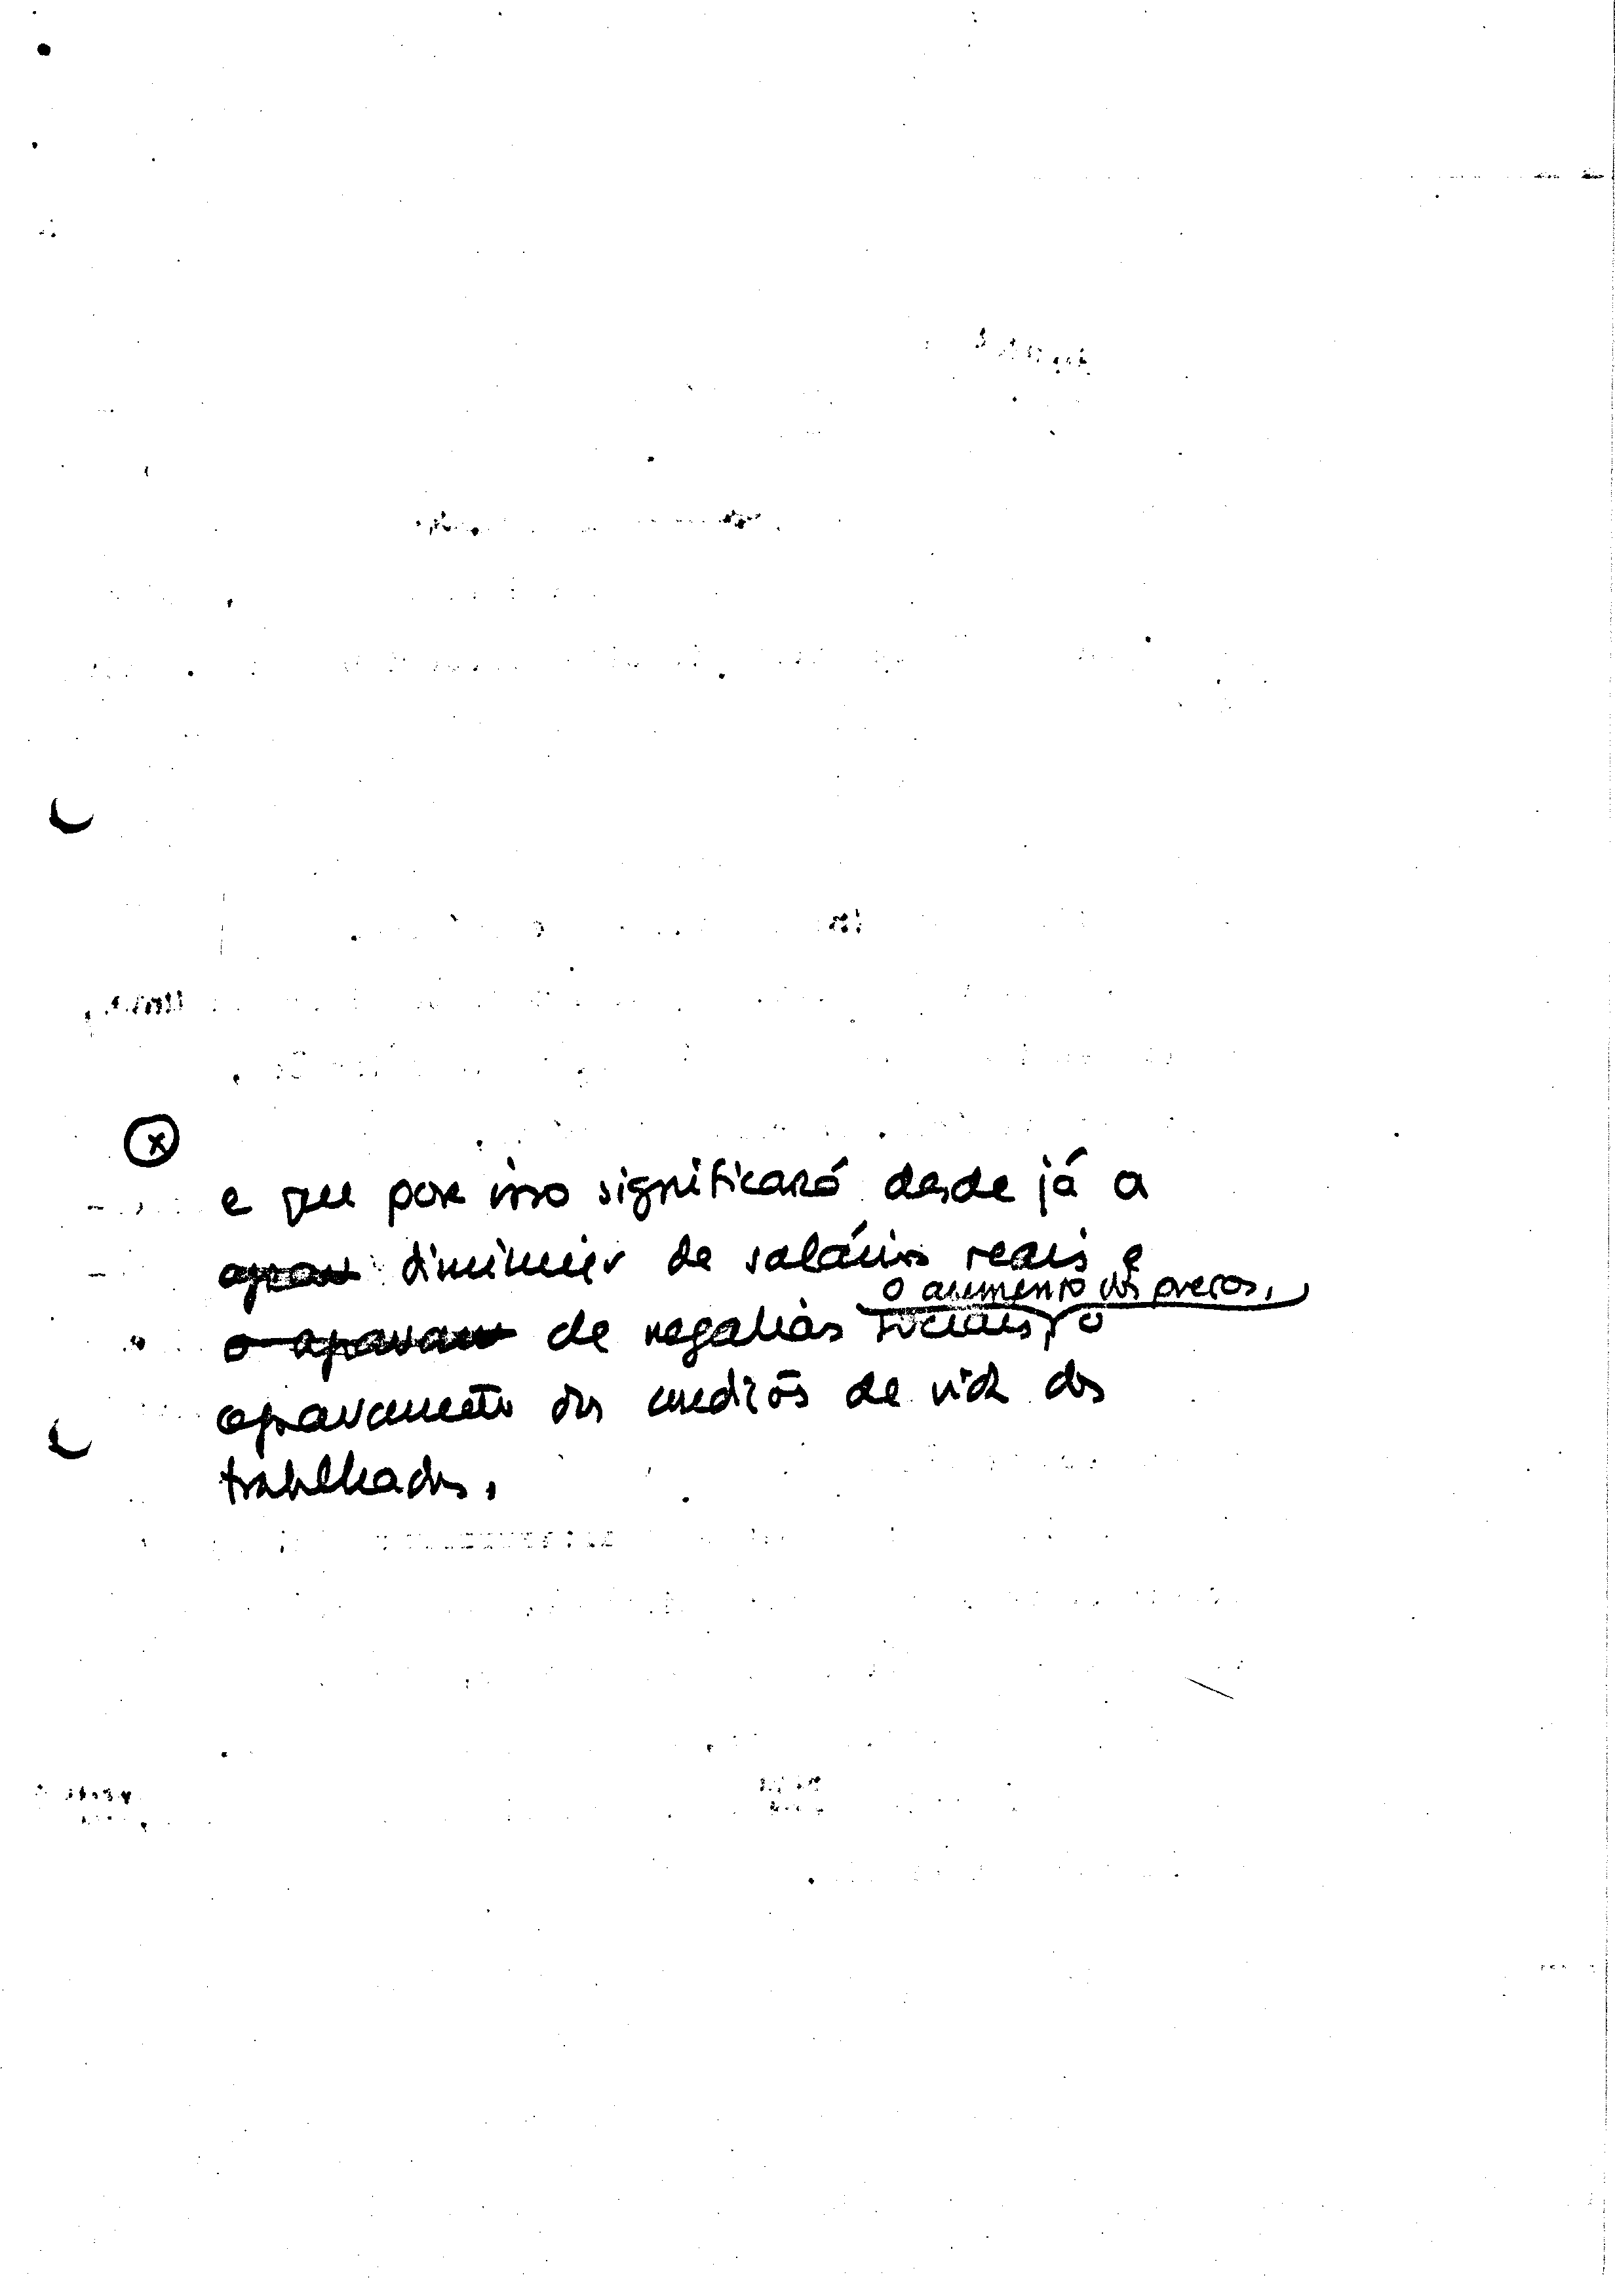 ⓧ
e que por isso significará desde já a
agrav diminuição de salários reais e
o aumento dos preços,
o agravam de regalias sociais, o
agravamento das condições de vida dos
trabalhadores.